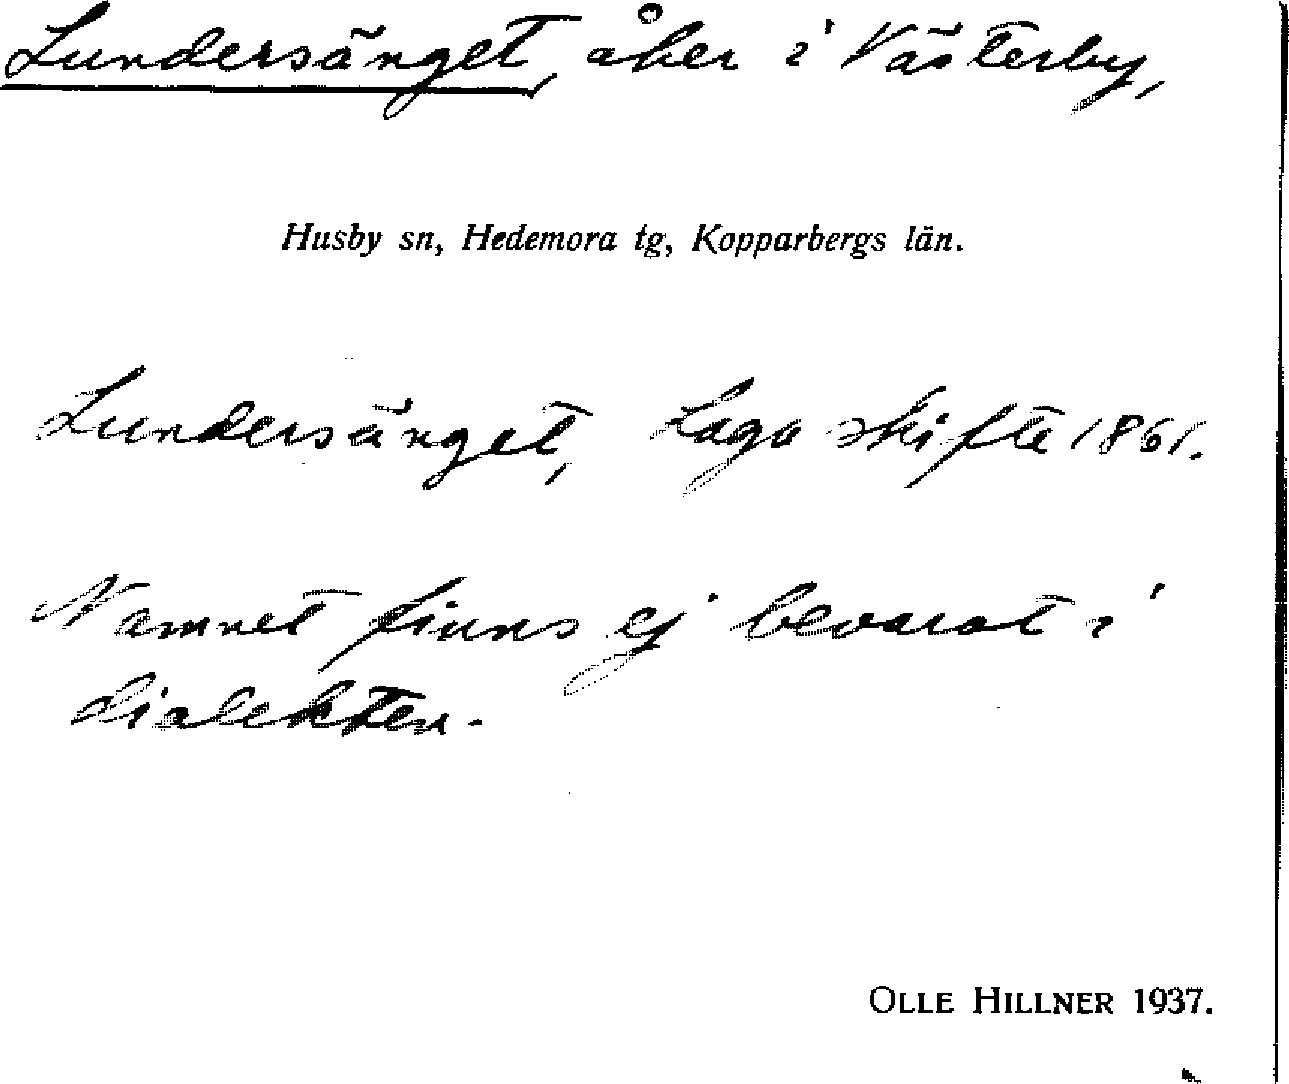 Lundersänget, åker i Västerby,
Husby sn, Hedemora tg, Kopparbergs län.
Lundersänget, Laga skifte 1861.
Namnet finns ej bevarat i
dialekten.
OLLE HILLNER 1937.